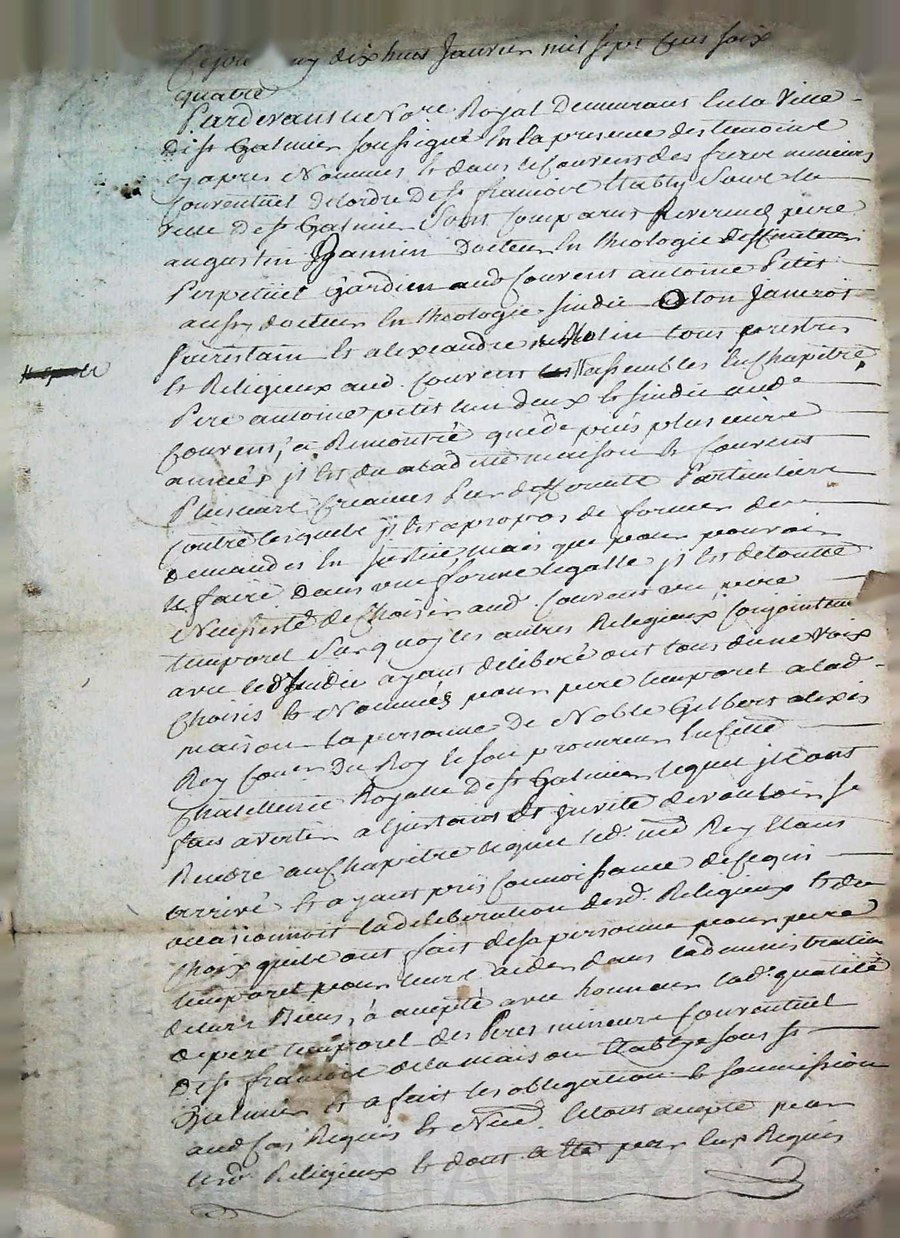 Cejourd'huy dix huit Janvier mil sept cens soix
quatre
Pardevant le No.re Royal Demeurant En la Ville
De St Galmier soussigné En la presence des temoins
cy apres Nommés Et dans le Couvent des freres mineurs
Couventuel de lordre De St francois Etably Sous la
ville De St Galmier Sont Comparus Reverend pere
augustin Jeannin Docteur En theologie diffiniteur
Perpetuel Gardien aud Couvent antoine Petit
aussy docteur En theologie sindic leon Janerot
Sacristain Et alexandre Molin tous prestres
Et Religieux aud. Couvent assembles En Chapitre,
Pere antoine petit lun deux Et sindic aud
Couvent, a Remontré que de puis plusieurs
années jl Est du a lad.te maison Et Couvent
Plusieurs Creances Par differents Particuliers
Contre lesquels jl Est apropos de former des
demandes En Justice, mais que pour pouvoir
le faire dans une forme legalle jl Est de toutte
Necessité de Choisir aud. Couvent un pere
temporel Surquoy les autres Religieux Conjointem
avec led sindic ayant deliberé ont tous dune voix
Choisis Et Nommés pour pere temporel a lad
maison la personne De Noble Gilbert alexis
Rey Con.er Du Roy Et son procureur En cette
Chatellenie Royalle de St Galmier lequel jls ont
fait avertir a l'instant Et jnvité de vouloir se
Rendre au Chapitre lequel led. Rey Etant
arrivé Et ayant pris Connoissance de ce qui
occasionnoit la deliberation desd. Religieux Et du
choix quils ont fait de sa personne pour pere
temporel pour leurs aider dans ladministration
de leurs Biens, à accepté avec honneur lad. qualité
de pere temporel des Peres mineurs Couventuel
De St francois de la maison Etablye sous St
Galmier Et a fait les obligation Et soummission
aud Cas Requis Et Necess. Et ont accepté pour
lesd. Religieux Et dont acte pour Eux Requis